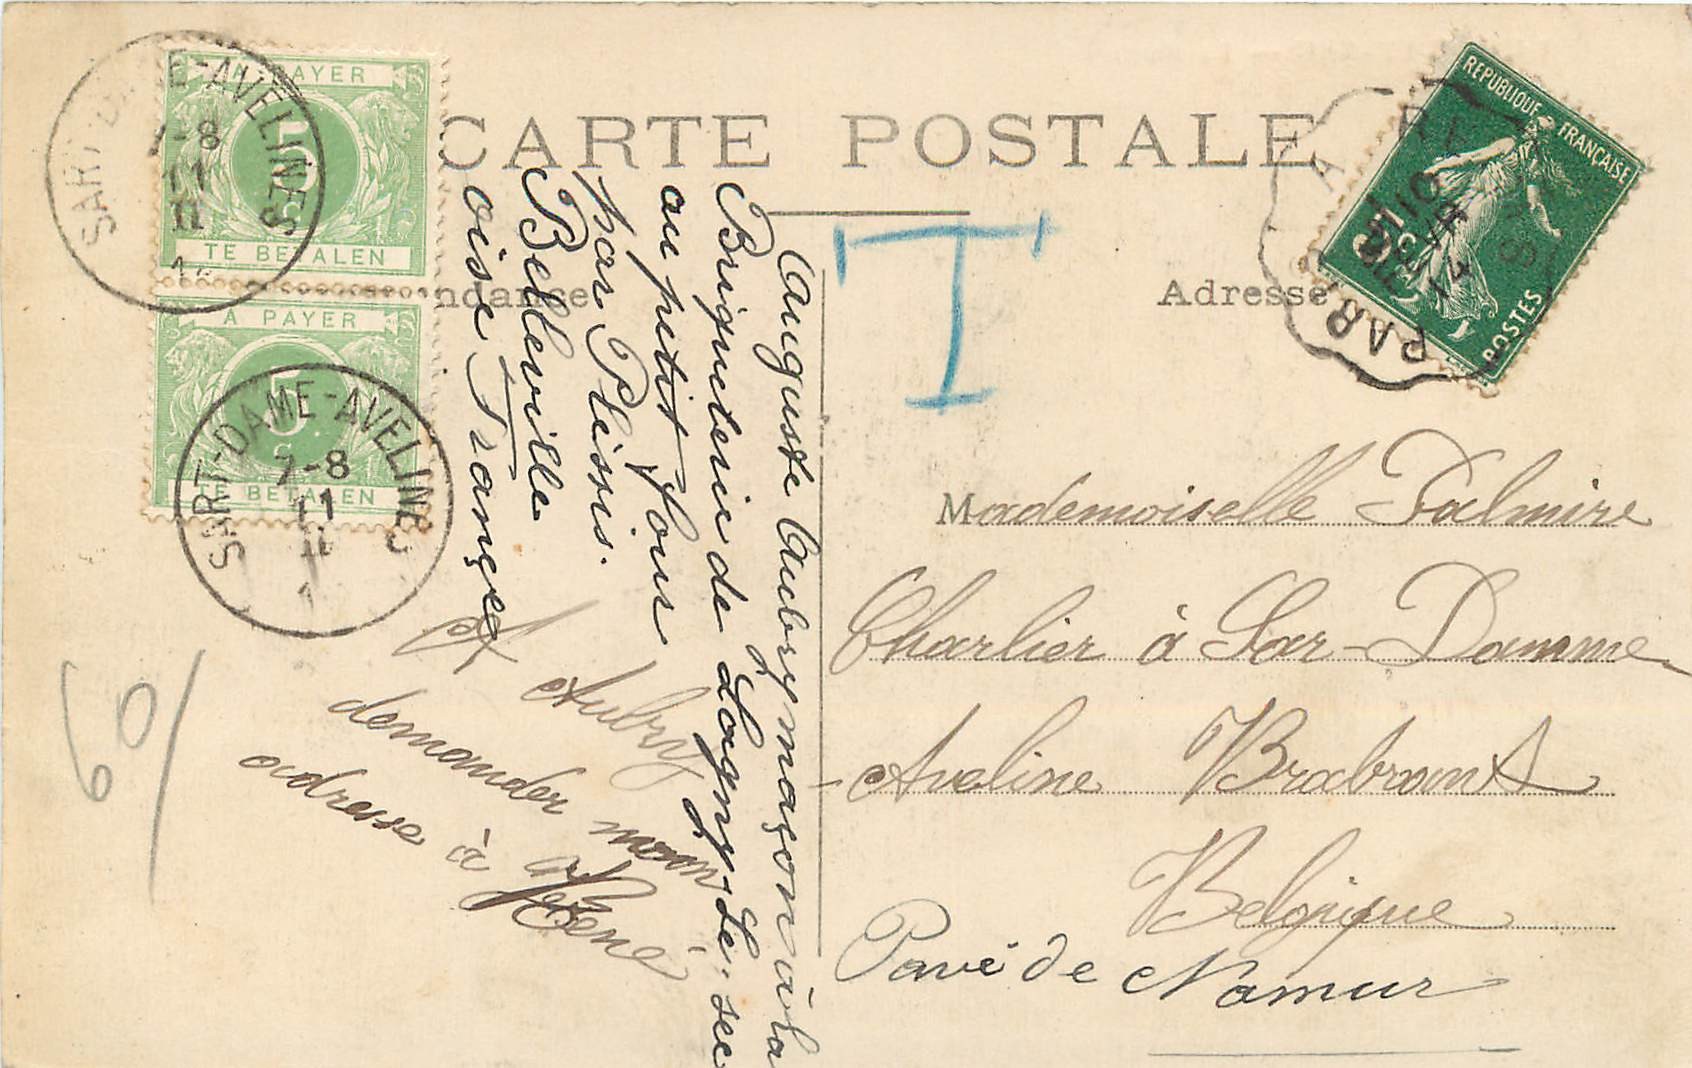 CARTE POSTALE
ndance
Adresse
A PAYER
5
TE BETALEN
A PAYER
5
TE BETALEN
SART-DAME-AVELINES
7-8
11
II
SART-DAME-AVELINES
7-8
11
II
REPUBLIQUE FRANÇAISE
POSTES
T
Mademoiselle Palmire
Charlier à Sar-Damme
Aveline Brabrant
Belgique
Pavé de Namur
Auguste Aubry maçon à la
Briqueterie de Lagny-Le-sec
au petit four
par Plessis.
Belleville
oise France
A Aubry
demander mon
adresse à René
60/